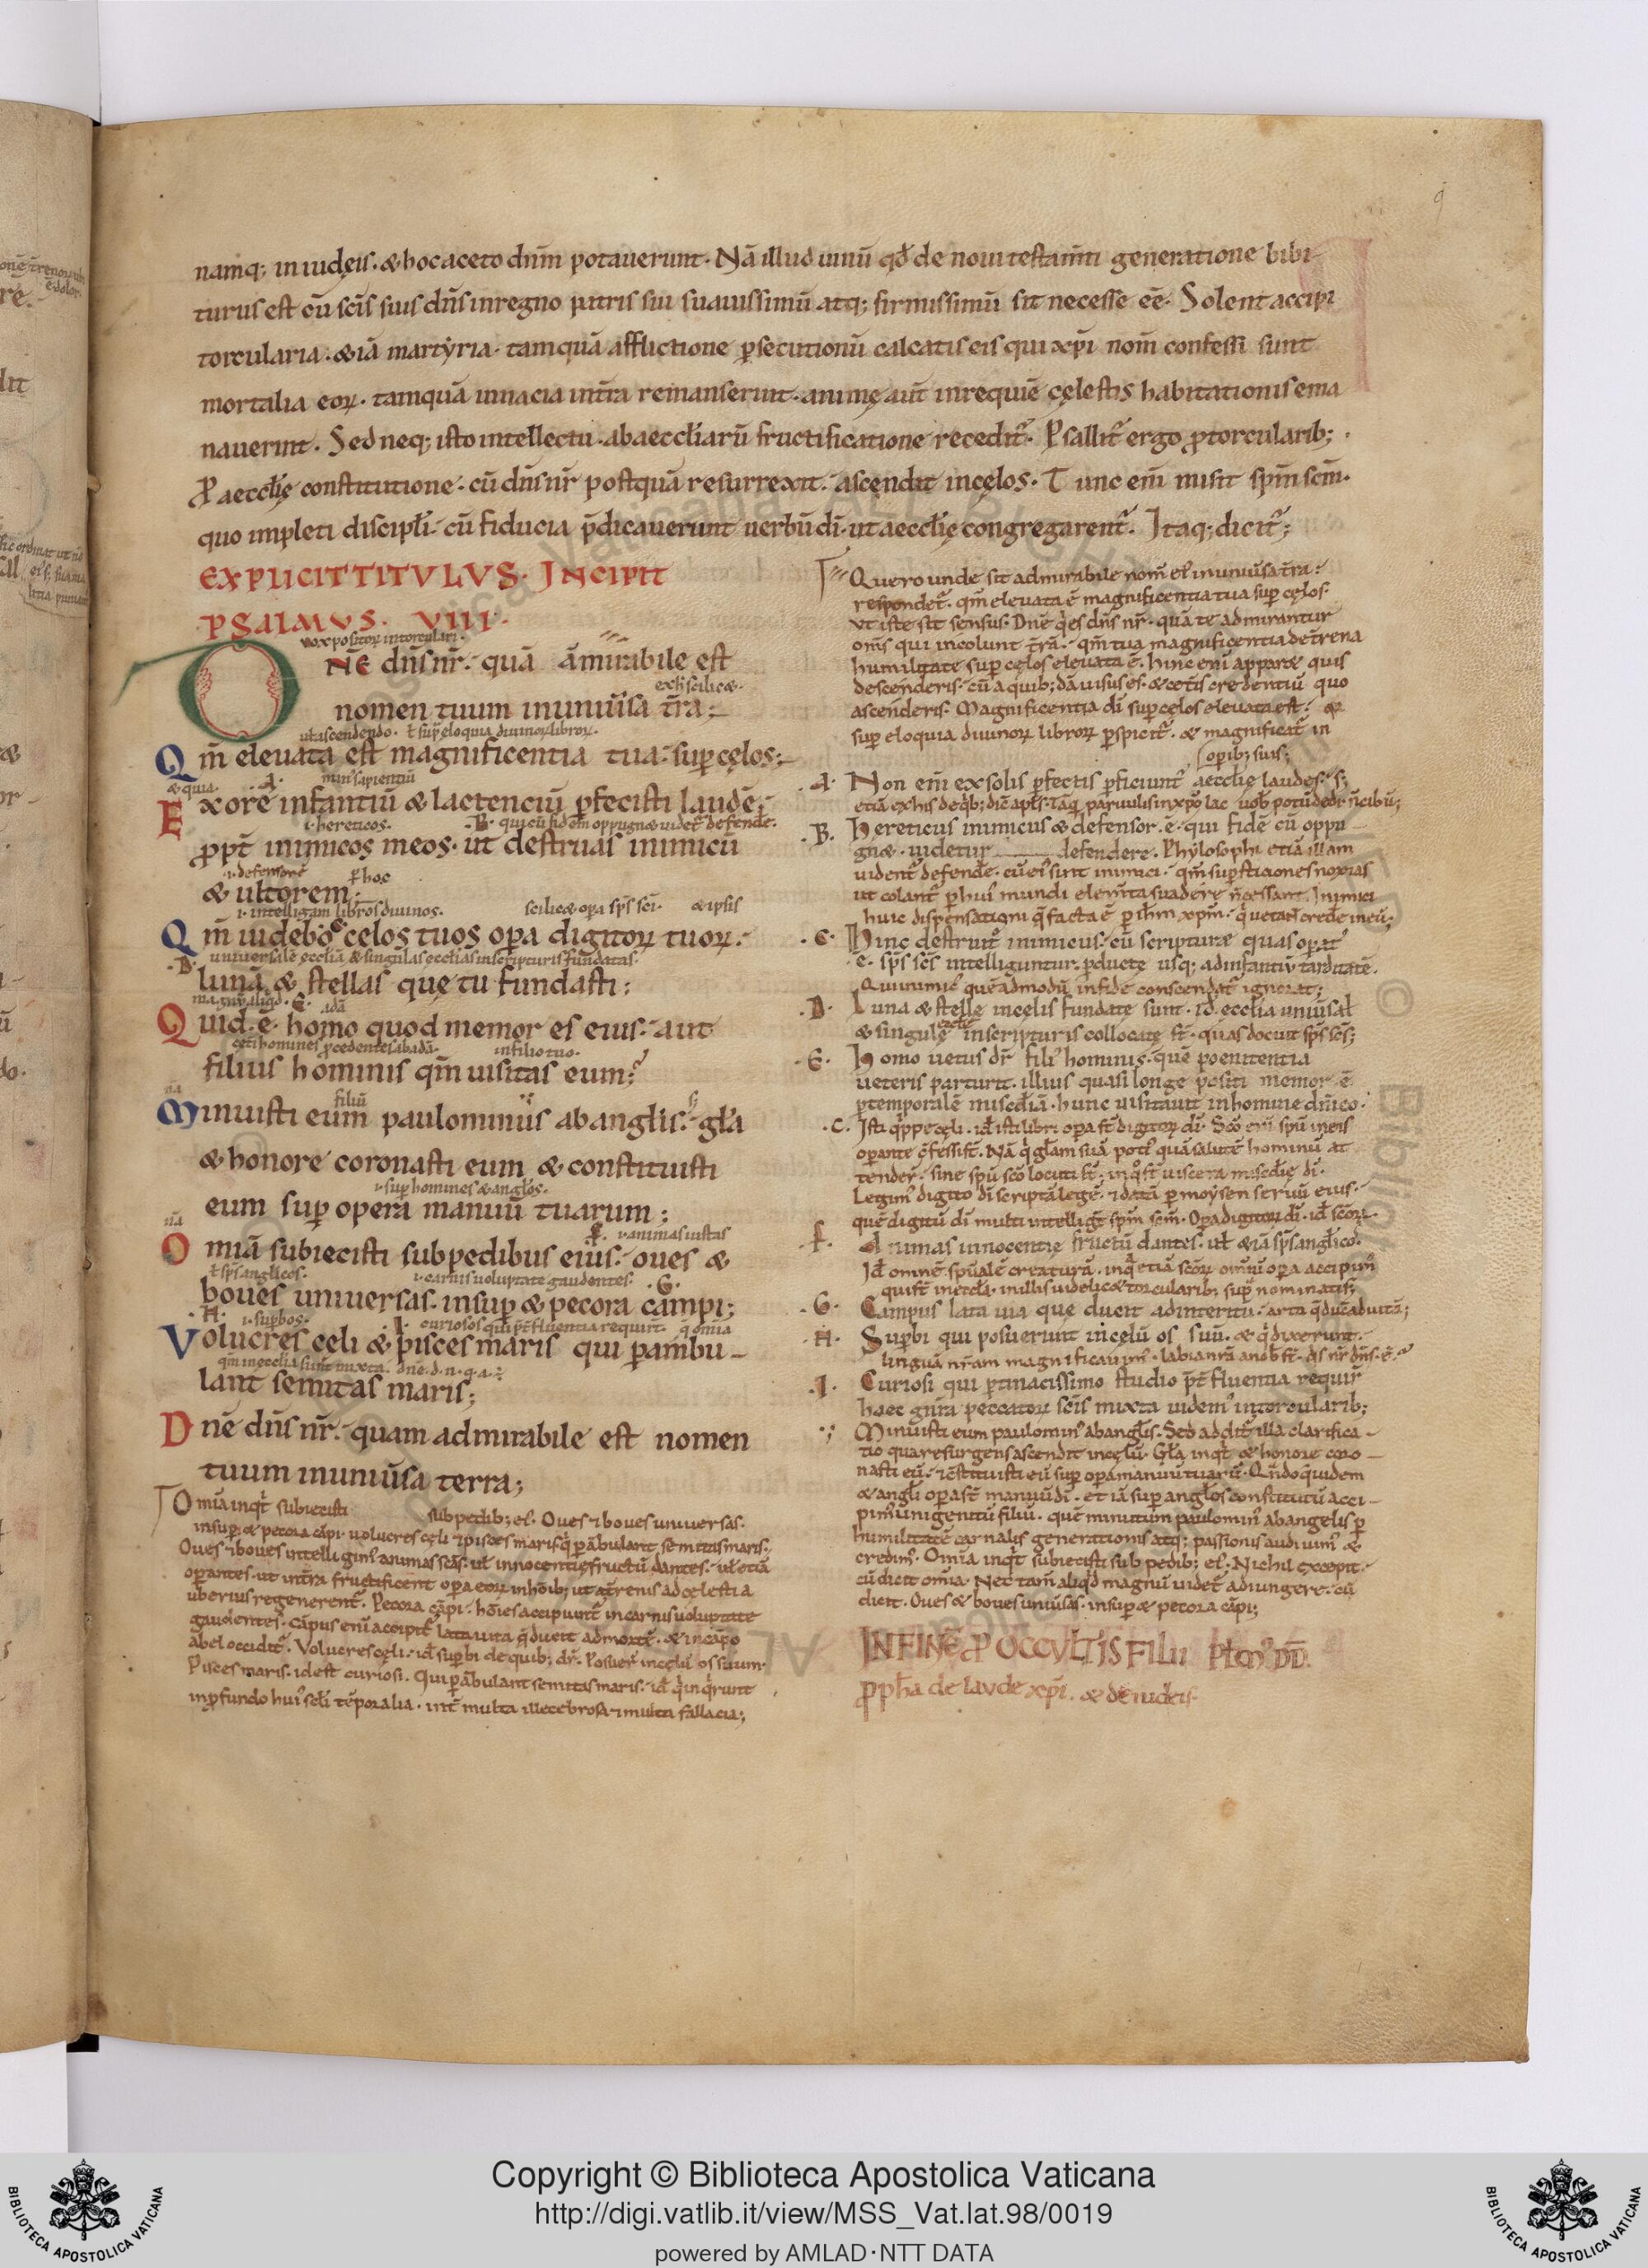 namq; in iudęis. & hoc aceto dn̄m potauerunt. Nā illud uinū qđ de noui testam̄ti generatione bibi
turus est cū sc̄is suis dn̄s in regno patris sui suauissimū atq; firmissimū sit necesse eē. Solent accipi
torcularia. & iā martyria. tamquā afflictione p̱secutionū calcatis eis qui xp̄i nom̄ confessi sunt
mortalia eoꝝ. tamquā uinacia in tr̄a remanserint. animę aut̄ in requiē cęlestis habitationis ema
nauerint. Sed neq; isto intellectu. ab aeccl̄iarū fructificatione recedit᷑. Psallit᷑ ergo ꝓ torcularib;.
P̱ aeccl̄ię constitutione. cū dn̄s nr̄ postquā resurrexit. ascendit in cęlos. Tunc eni misit sp̄m sc̄m.
quo impleti discipl̄i. cū fiducia p̄dicauerunt uerbū dī. ut aeccl̄ię congregarent᷑. Itaq; dicit᷑;
EXPLICIT TITVLVS. INCIPIT
PSALMVS. VIII.
uox positoꝝ in torculari.
DNĒ dn̄s nr̄. quā āmirabile est
nomen tuum in uniūsa tr̄a;
ut ascendendo. ł sup̱ eloquia diuinoꝝ libroꝝ.
Qm̄ eleuata est magnificentia tua. sup̱ cęlos;
& quia. .A. min᷒ sapientiū
Ex ore infantiū & lactenciū p̱fecisti laudē.
.i. hereticos. .B. qui cū fidem oppugn& uidet᷑ defende᷑.
ꝓpt̄ inimicos meos. ut destruas inimicū
.i. defensorē p̱ hoc
& ultorem;
.i. intelligam libros diuinos. scilic& opa sp̄s sc̄i. & ipsis
Qm̄ uidebo cęlos tuos op̱a digitoꝝ tuoꝝ.
.D. uniuersalē eccl̄ia & singulas ecclias in scripturis fundatas.
lunā & stellas quę tu fundasti;
magnū aliqđ. .E. adā
Quid. ē. homo quod memor es eius. aut
cęti homines ꝓcedentes ab adā. in filio tuo.
filius hominis qm̄ uisitas eum?
filiū
Minuisti eum paulominus ab angl̄is. gl̄a
& honore coronasti eum & constituisti
.i. sup̱ homines & angl̄os.
eum sup̱ opera manuū tuarum;
.F. .i. animas iustas
Omīa subiecisti sub pedibus eius. oues &
ł sp̄s anglicos. .i. carnis uoluptate gaudentes. .G.
boues uniuersas. insup̱ & pecora campi;
.H. .i. sup̱bos. .I. curiosos qui p̄t̄fluentia requir̄t. q̄ omīa
Volucres cęli & pisces maris qui p̱ambu-
qm̄ in ecclia sunt mixta. dn̄e. d. n. q. a.
lant semitas maris;
Dn̄e dn̄s nr̄. quam admirabile est nomen
tuum in uniūsa terra;
Omīa inqt̄ subiecisti sub pedib; ei᷒. Oues & boues uniuersas.
insup̱ & pecora cāpi. uolucres cęli & pisces maris q̄ p̱ābulant semitas maris.
Oues & boues intelligim᷒ animas sc̄as. ul̄ innocentię fructū dantes. ul̄ etiā
op̱antes. ut in tr̄a fructificent op̱a eoꝝ in hoīb; ut a tr̄enis ad cęlestia
uberius regenerent᷑. Pecora cāpi. hoīes accipiunt᷑ in carnis uoluptate
gaudentes. Cāpus eni accipit᷑ lata uia q̄ ducit ad mortē. & in cāpo
abel occidit᷑. Volucres cęli. id sup̱bi de quib; dr̄. Posuer̄ in cęlū os suum.
Pisces maris. id est curiosi. Qui p̱ābulant semitas maris. id qui inq̄runt
in ꝓfundo hui᷒ sc̄li tēporalia. int̄ multa illecebrosa & multa fallacia;
Quero unde sit admirabile nom̄ ei᷒ in uniūsa tr̄a.
respondet᷑. qm̄ eleuata ē magnificentia tua sup̱ cęlos.
Vt iste sit sensus. Dn̄e q̄ es dn̄s nr̄. quā te admirantur
om̄s qui incolunt tr̄ā. qm̄ tua magnificentia de tr̄ena
humilitate sup̱ cęlos eleuata ē. hinc eni appar& quis
descenderis. cū a quib;dā uisus es. & cet̄is credentiū quo
ascenderis. Magnificentia dī sup̱ cęlos eleuata est.
sup̱ eloquia diuinoꝝ libroꝝ p̱spicit᷑. & magnificat᷑ in
op̱ib; suis;
.A. Non eni ex solis p̱fectis p̱ficiunt᷑ aecclię laudes. s;
etiā ex his de q̄b; dic̄ apl̄s. Tāq̄ paruulis in xp̄o lac uob̄ potū dedi n̄ cibū;
.B. Hereticus inimicus & defensor. ē. qui fidē cū oppu-
gn&. uidetur defendere. Phylosophi etiā illam
uident᷑ defende᷑. cū ei᷒ sint inimici. qm̄ sup̱stitiones noxias
ut colant᷑ p̱ hui᷒ mundi elem̄ta suadere n̄ cessant. Inimici
huic dispensationi q̄ facta ē p̱ ih̄m xp̄m.
.C. Hinc destruit᷑ inimicus. cū scripturę quas op̱at᷑
ē. sp̄s sc̄s intelliguntur. p̱ductę usq; ad infantiū tarditatē.
Qui inimic᷒ quēadmodū in fidē conscendat ignorat;
.D. Luna & stellę in cęlis fundatę sunt. id. ecclia uniūsal̄
& singulę eccl̄ię in scripturis collocatę st̄. quas docuit sp̄s sc̄s;
.E. Homo uetus dr̄ fili᷒ hominis. quē poenitentia
ueteris parturit. illius quasi longe positi memor ē
p̱ temporalē miscdiā. hunc uisitauit in homine dn̄ico.
.C. Isti q̄ppe cęli. id isti libri op̱a st̄ digitoꝝ dī. Sc̄o eni spū in eis
op̱ante ꝯfessi st̄. Nā q̄ gl̄am suā poti᷒ quā salutē hominū at
tender̄. sine spū sc̄o locuti st̄. in q̄ st̄ uiscera miscdię dī.
Legim᷒ digito dī scriptā legē. & datā p̱ moysen seruū eius.
quē digitū dī multi intelliḡt sp̄m sc̄m. Op̱a digitoꝝ dī. id sc̄oꝝ.
.F. Animas innocentię fructū dantes. ul̄ & iā sp̄s anglicos.
Id omnē spūalē creaturā. in q̄ etiā sc̄oꝝ omīu op̱a accipim᷒
qui st̄ in eccl̄a. in illis uidelic& torcularib; sup̱ nominatis;
.G. Campus lata uia quę ducit ad interitū. arta q̄ ducit ad uitā;
.H. Sup̱bi qui posuerunt in cęlū os suū. & q̄ dixerunt.
linguā nr̄am magnificauim᷒. labia nr̄a a nob̄ st̄. q̄s nr̄ dn̄s. ē.
.I. Curiosi qui p̱tinacissimo studio p̄t̄fluentia requir̄
haec gn̄ra peccatoꝝ sc̄is mixta uidem᷒ in torcularib;
Minuisti eum paulomin᷒ ab angl̄is. Sed addit᷑ illa clarifica-
tio qua resurgens ascendit in cęlū. Gl̄a inqt̄ & honore coro
nasti eū. & ꝯstituisti eū sup̱ op̱a manuū tuarū. Qn̄doq̄dem
& angl̄i op̱a st̄ manuū dī. et iā sup̱ angl̄os constitutū acci-
pim᷒ unigenitū filiū. quē minutum paulomin᷒ ab angelis p̱
humilitatē carnalis generationis atq; passionis audiuim᷒ &
credim᷒. Omīa inqt̄ subiecisti sub pedib; ei᷒. Nichil excepit.
cū dicit omīa. Nec tam̄ aliqđ magnū uidet᷑ adiungere. cū
dicit. Oues & boues uniūsas. insup̱ & pecora cāpi;
IN FINĒ P OCCVLTIS FILII Pl̄m᷒ DD̄.
ꝓph̄a de laude xp̄i. & de iudeis.
Copyright © Biblioteca Apostolica Vaticana
http://digi.vatlib.it/view/MSS_Vat.lat.98/0019
powered by AMLAD·NTT DATA
BIBLIOTECA APOSTOLICA VATICANA
BIBLIOTECA APOSTOLICA VATICANA